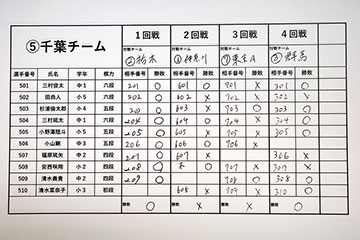 ⑤千葉チーム 1回戦 2回戦 3回戦 4回戦
対戦チーム 対戦チーム 対戦チーム 対戦チーム
②栃木 ⑥神奈川 ⑦東京A ③群馬
選手番号 氏名 学年 棋力 相手番号 勝敗 相手番号 勝敗 相手番号 勝敗 相手番号 勝敗
501 三村俊太 中1 六段 201 ○ 601 ○ 701 × 301 ○
502 田呑人 小5 六段 202 ○ 602 × 702 × 322 ×
503 杉浦倫太郎 小4 五段 203 × 703 ○ 303 ○
504 三村琉太 小1 五段 204 ○ 604 ○ 704 × 304 ○
505 小野澤陸斗 小5 五段 205 ○ 605 × 705 × 305 ○
506 小山嗣 中3 五段 206 ○ 606 ○ 706 ×
507 福原琉矢 中2 四段 207 ○ 607 × 306 ×
508 安西咲翔 小2 四段 208 ○ 707 × 307 ×
509 清水義貴 中2 四段 209 ○ 708 ○ 308 ○
510 清水菜奈子 小3 初段 608 × 709 × 310 ○
勝敗 ○ 勝敗 × 勝敗 × 勝敗 ○